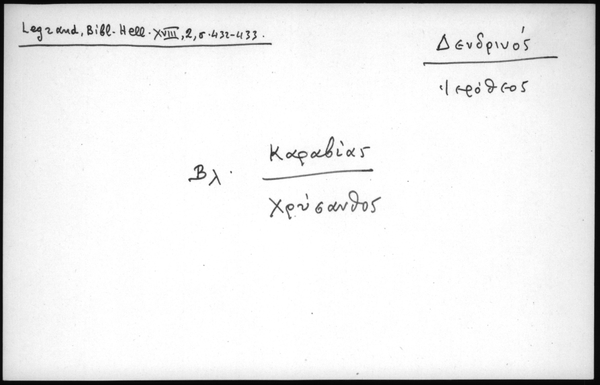 Legrand, Bibl. Hell. XVIII, 2, σ. 432-433.
Δενδρινός
Ἱερόθεος
Βλ. Καραβίας
Χρύσανθος